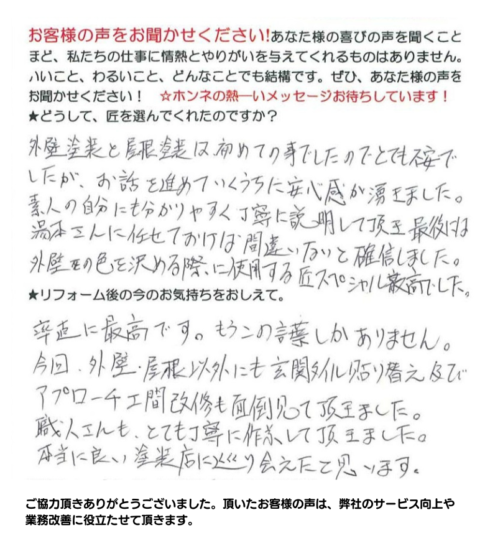 お客様の声をお聞かせください!あなた様の喜びの声を聞くこと
ほど、私たちの仕事に情熱とやりがいを与えてくれるものはありません。
いいこと、わるいこと、どんなことでも結構です。ぜひ、あなた様の声を
お聞かせください! ☆ホンネの熱ーいメッセージお待ちしています!
★どうして、匠を選んでくれたのですか?
外壁塗装と屋根塗装は初めての事でしたのでとても不安で
したが、お話を進めていくうちに安心感が湧きました。
素人の自分にも分かりやすく丁寧に説明して頂き最後は
湯本さんに任せておけば間違いないと確信しました。
外壁の色を決める際に使用する匠スペシャル最高でした。
★リフォーム後の今のお気持ちをおしえて。
率直に最高です。もうこの言葉しかありません。
今回、外壁・屋根以外にも玄関タイル貼り替え及び
アプローチ土間改修も面倒見て頂きました。
職人さんも、とても丁寧に作業して頂きました。
本当に良い塗装店に巡り会えたと思います。
ご協力頂きありがとうございました。頂いたお客様の声は、弊社のサービス向上や
業務改善に役立たせて頂きます。